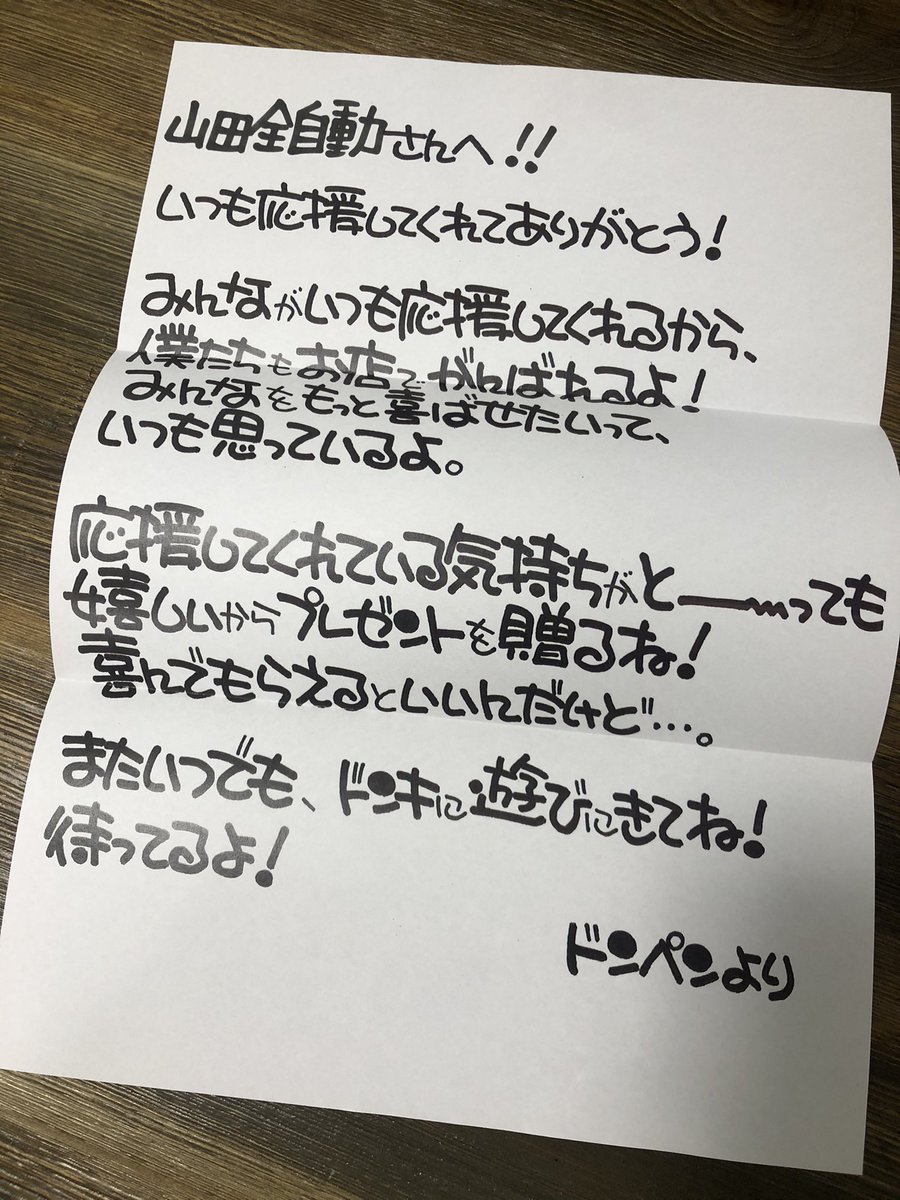 山田全自動さんへ!!
いつも応援してくれてありがとう!
みんながいつも応援してくれるから、
僕たちもお店でがんばれるよ!
みんなをもっと喜ばせたいって、
いつも思っているよ。
応援してくれている気持ちがと──〰っても
嬉しいからプレゼントを贈るね!
喜んでもらえるといいんだけど…。
またいつでも、ドンキに遊びにきてね!
待ってるよ!
ドンペンより